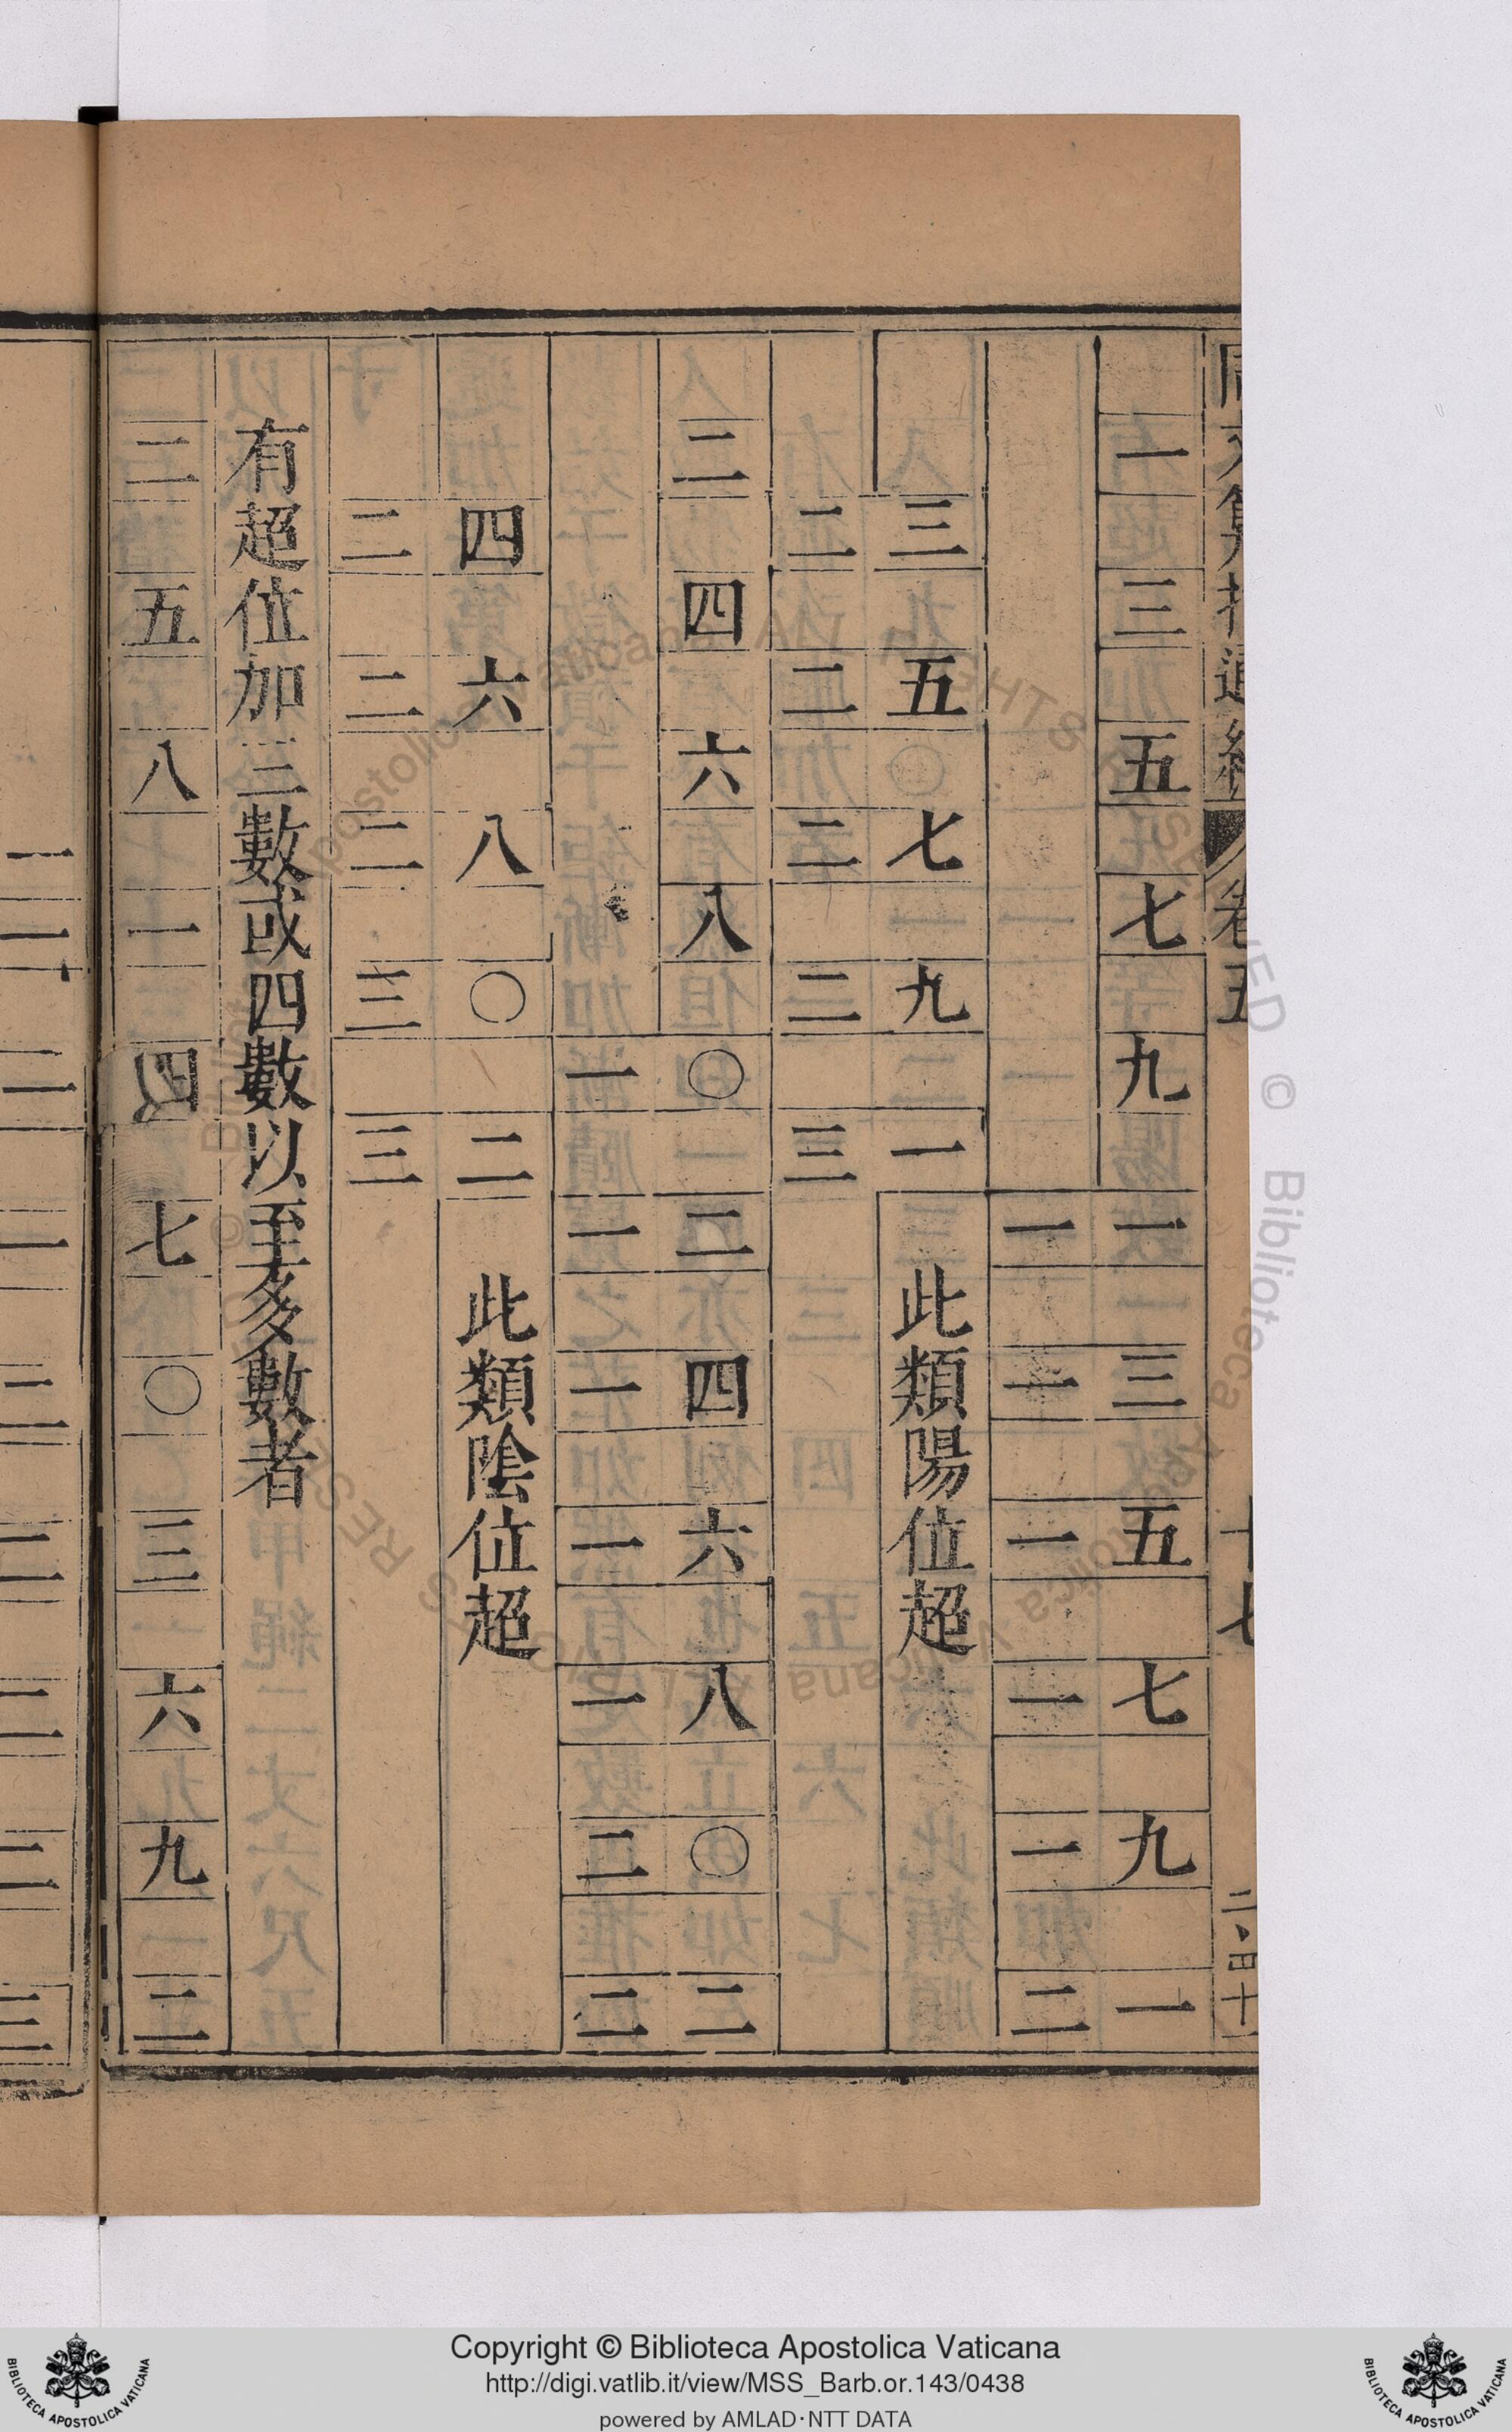 一三五七九一三五七九一
一一一一一二
三五七九一此類陽位超
二二二二三
二四六八〇二四六八〇二
一一一一一二二
四六八〇二此類陰位超
二二二三三
有超位加三數或四數以至多數者
二五八一四七〇三六九二
卷五
十七
Copyright © Biblioteca Apostolica Vaticana
http://digi.vatlib.it/view/MSS_Barb.or.143/0438
powered by AMLAD·NTT DATA
BIBLIOTECA APOSTOLICA VATICANA
BIBLIOTECA APOSTOLICA VATICANA